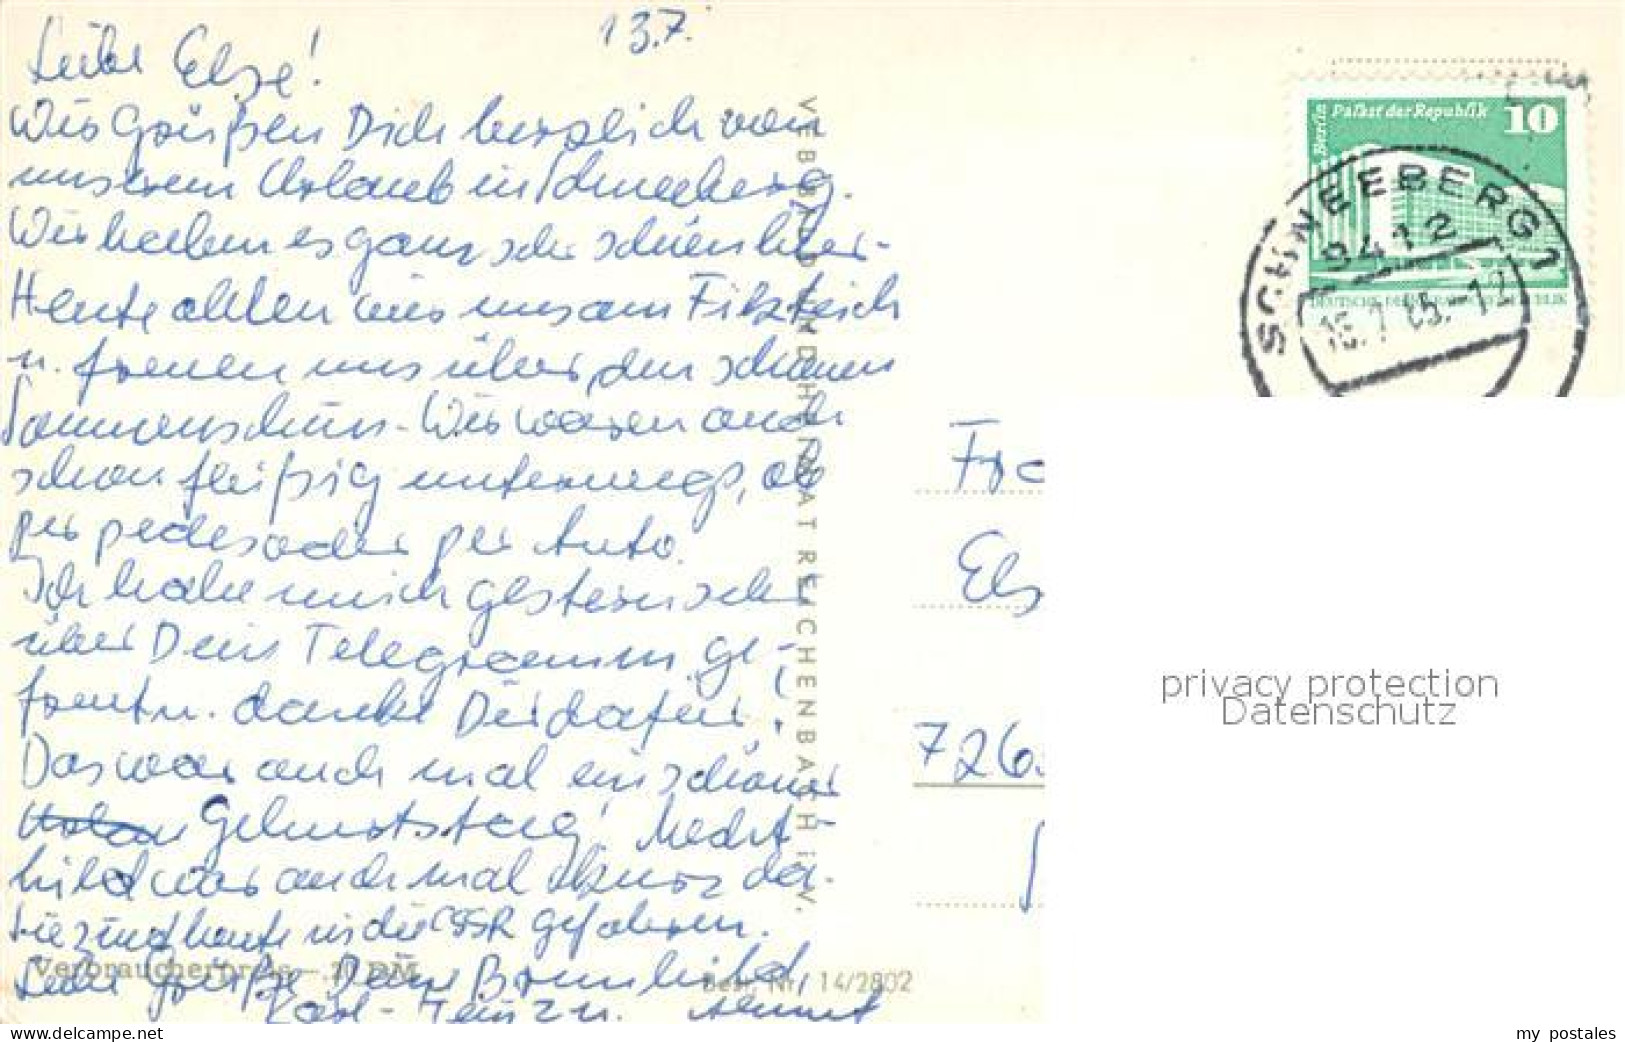 13.7.
Liebe Else!
Wir grüßen Dich herzlich von
unserem Urlaub in Schneeberg.
Wir haben es ganz sehr schön hier.
Heute ahlen wir uns am Filzteich
u. freuen uns über den schönen
Sonnenschein. Wir waren auch
schon fleißig unterwegs, ob
per pedes oder per Auto.
Ich habe mich gestern sehr
über Dein Telegramm ge-
freut u. danke Dir dafür!
Das war auch mal ein schöner
Geburtstag! Mecht-
hild war auch mal kurz da.
Sie sind heute in die CSSR gefahren.
Liebe Grüße Deine Brunhild,
Karl-Heinz u.
VEB BILD UND HEIMAT REICHENBACH i. V.
Verbraucherpreis -,20 DM
Best. Nr. 14/2802
Berlin
Palast der Republik
10
DEUTSCHE DEMOKRATISCHE REPUBLIK
SCHNEEBERG 1
9412
.7.85.-12
Fra
Els
726
privacy protection
Datenschutz
www.delcampe.net
my_postales